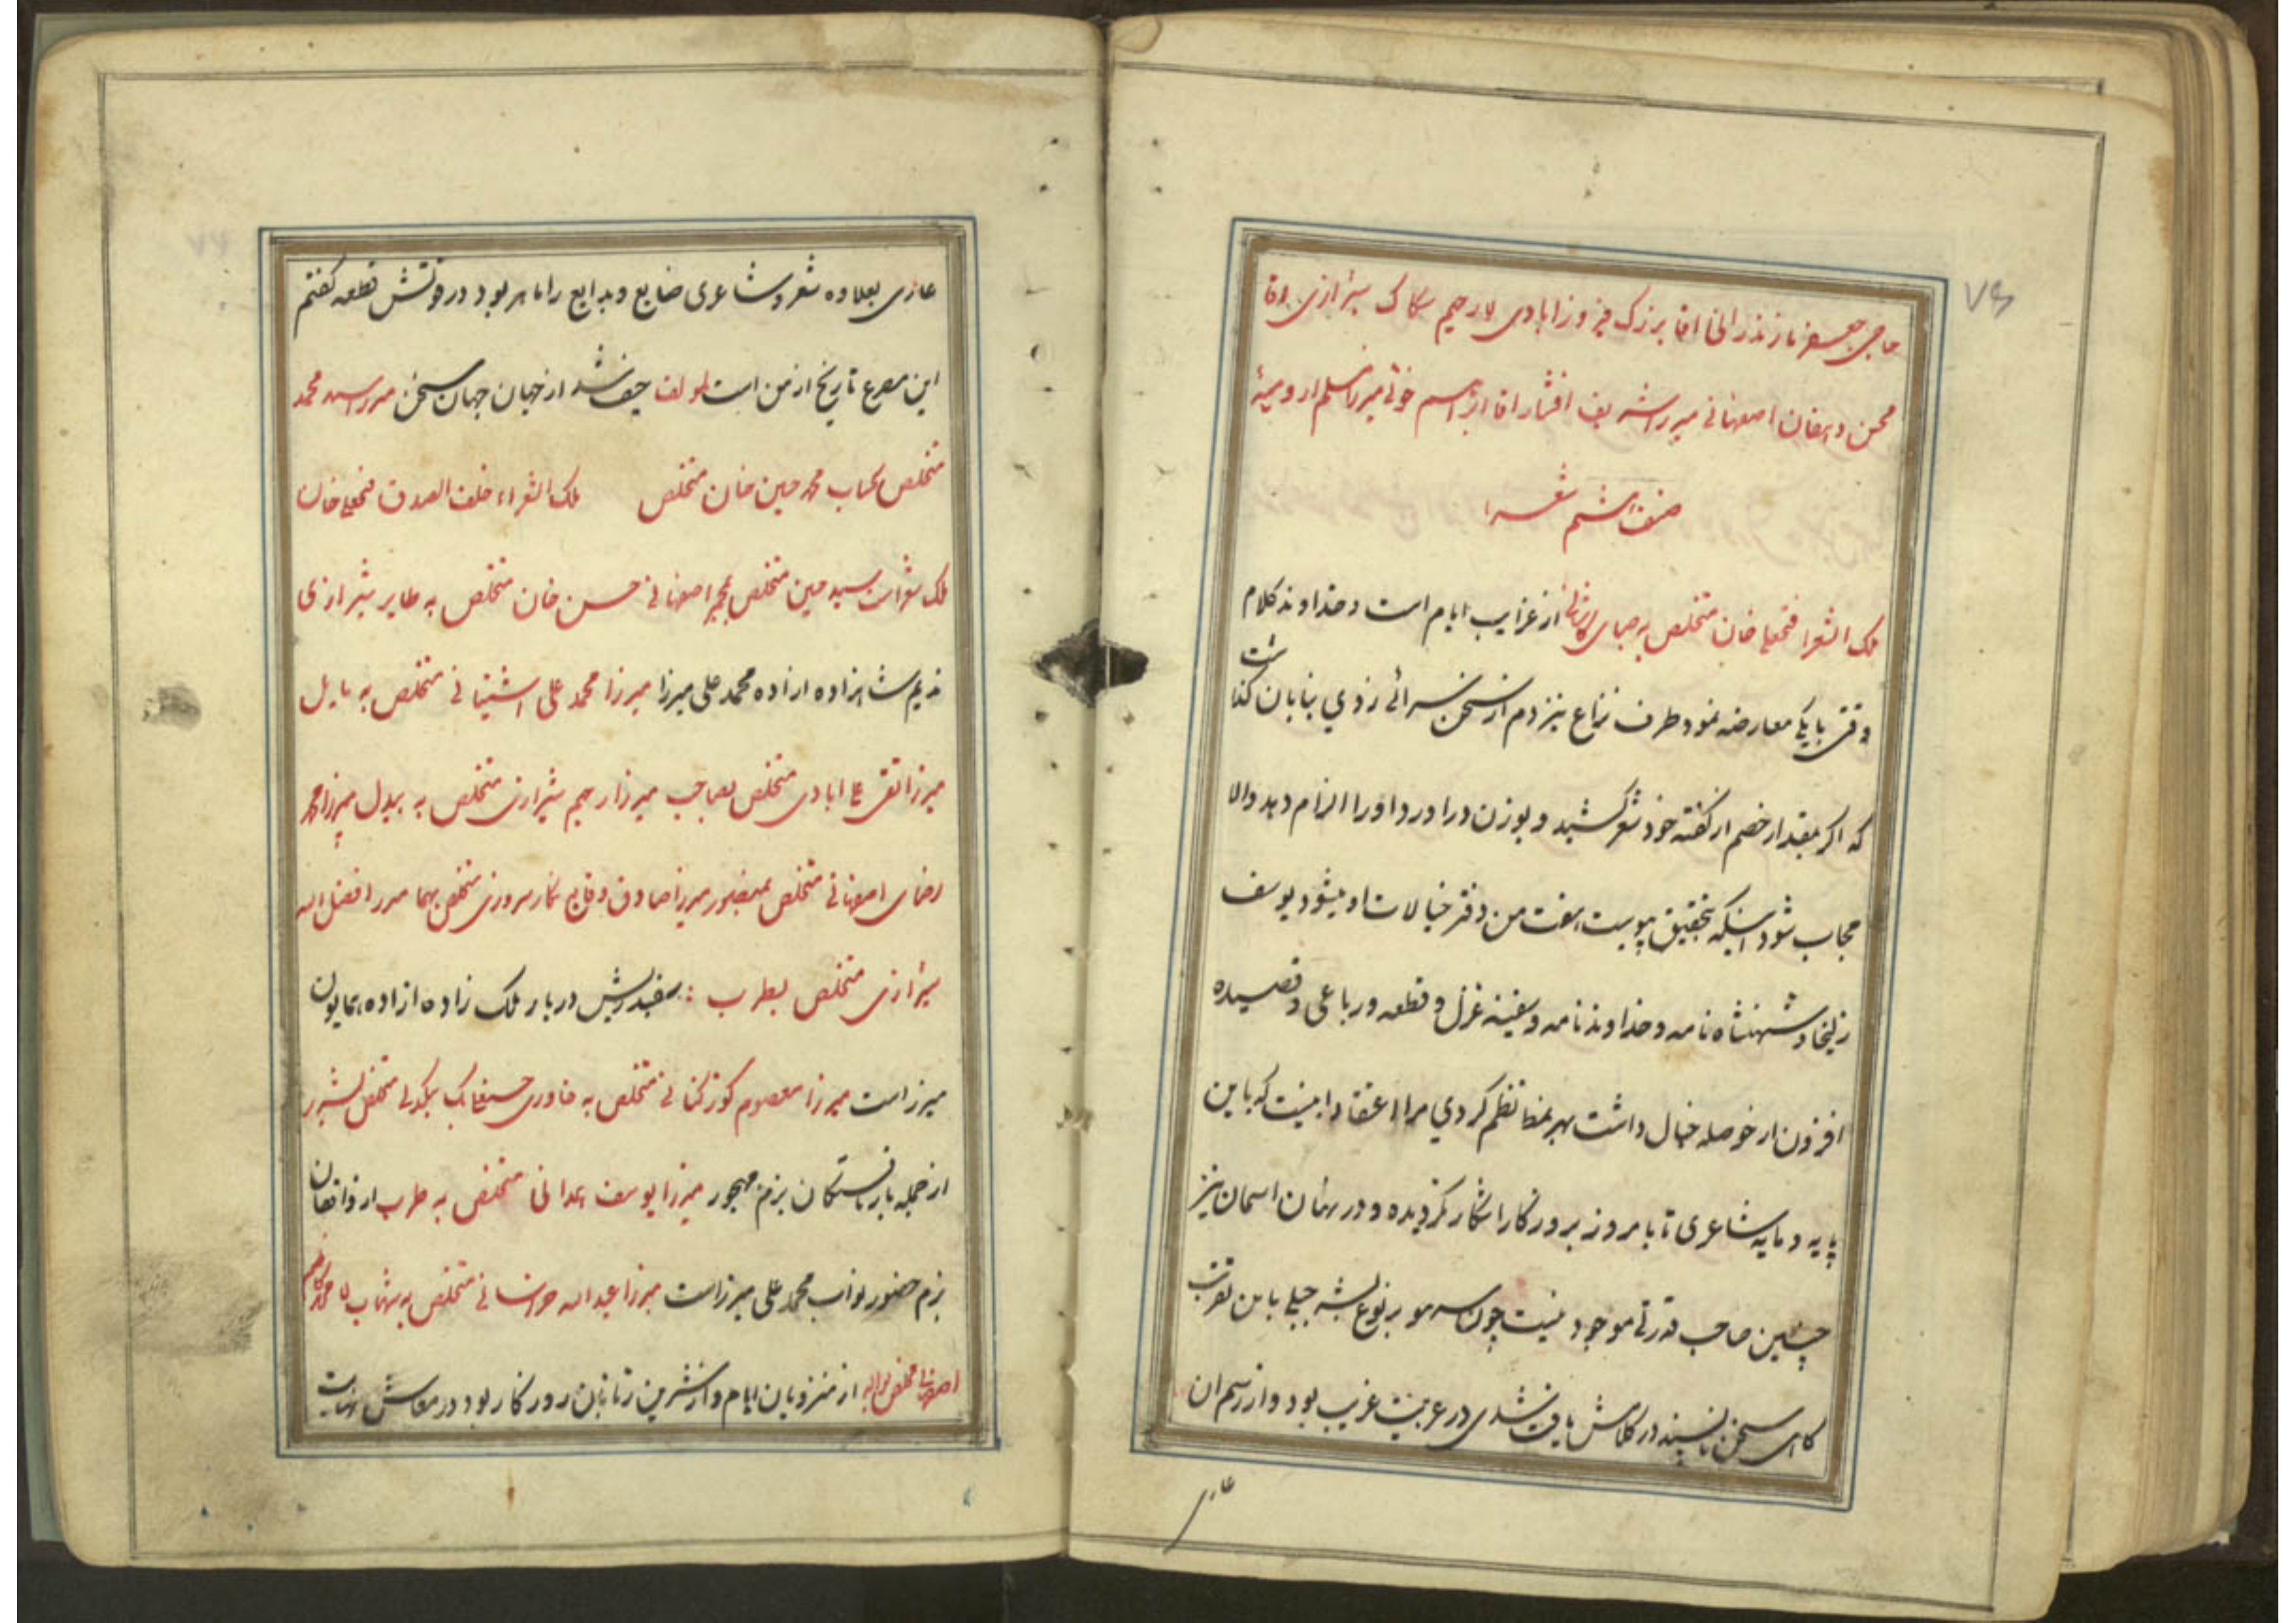 ۷۶
حاجی جعفر مازندرانی اقا بزرک فیروزابادی لا رحیم سکاک شیرازی اقا
محسن دهقان اصفهانی میرزا شریف افشار اقا ابراهیم خوئی میرزا مسلم ارومیهٔ
صنف ششم شعرا
ملک الشعرا فتحعلی خان متخلص به صبای کاشانی از غرایب ایام است و خداوند کلام
وقتی با یکی معارضه نمود طرف نزاع نیز دم از سخن سرائی زدی بنا بان کذاشت
که اکر بمقدار خصم از کفته خود شعر کشید و بوزن درا ورد او را الزام دهد والا
مجاب شود اینکه بتحقیق پیوست هفت من دفتر خیالات او میشود یوسف
زلیخا و شهنشاه نامه و خداوند نامه و سفینه غزل و قطعه و رباعی و قصیده
افزون از حوصله خیال داشت بهر نمط نظم کردی مرا اعتقاد اینست که باین
پایه و مایه شاعری تا بامروز بروزکار اشکار نکردیده و در نهان اسمان نیز
چنین صاحب قدرتی موجود نیست چون سهو بر نوع بشر جبلی باین تقرب
کاهی سخن ناپسند در کلامش یافت شدی در عربیت غریب بود و از رسم ان
عاری
عاری بعلاوه شعر و شاعری صنایع و بدایع را ماهر بود در فوتش قطعه کفتم
این مصرع تاریخ از من است لمولفه حیف شد از جهان جهان سخن میرزا سید محمد
متخلص بسحاب محمد حسین خان متخلص ملک الشعراء خلف الصدق فتحعلی خان
ملک شعراست سید حسین متخلص بمجمر اصفهانی حسن خان متخلص به طایر شیرازی
ندیم شاهزاده ازاده محمد علی میرزا میرزا محمد علی اشتیانی متخلص به مایل
میرزا تقی علی ابادی متخلص بصاحب میرزا رحیم شیرازی متخلص به بیدل میرزا محمد
رضای اصفهانی متخلص بمنصور میرزا صادق وقایع نکار مروزی متخلص بهما میرزا فضل الله
شیرازی متخلص بطرب : سفید ریش دربار ملک زاده ازاده همایون
میرزاست میرزا معصوم کوزکنانی متخلص به خاوری حسنعلی بک بیکدلی متخلص بشرر
از جمله باریافتکان بزم مهجور میرزا یوسف همدانی متخلص به طرب از واقفان
بزم حضور نواب محمد علی میرزاست میرزا عبد الله خراسانی متخلص به شهاب لا محمد کاظم
اصفهانی متخلص بواله از منزویان ایام و از شیرین زبانان روزکار بود در معاش نهایت